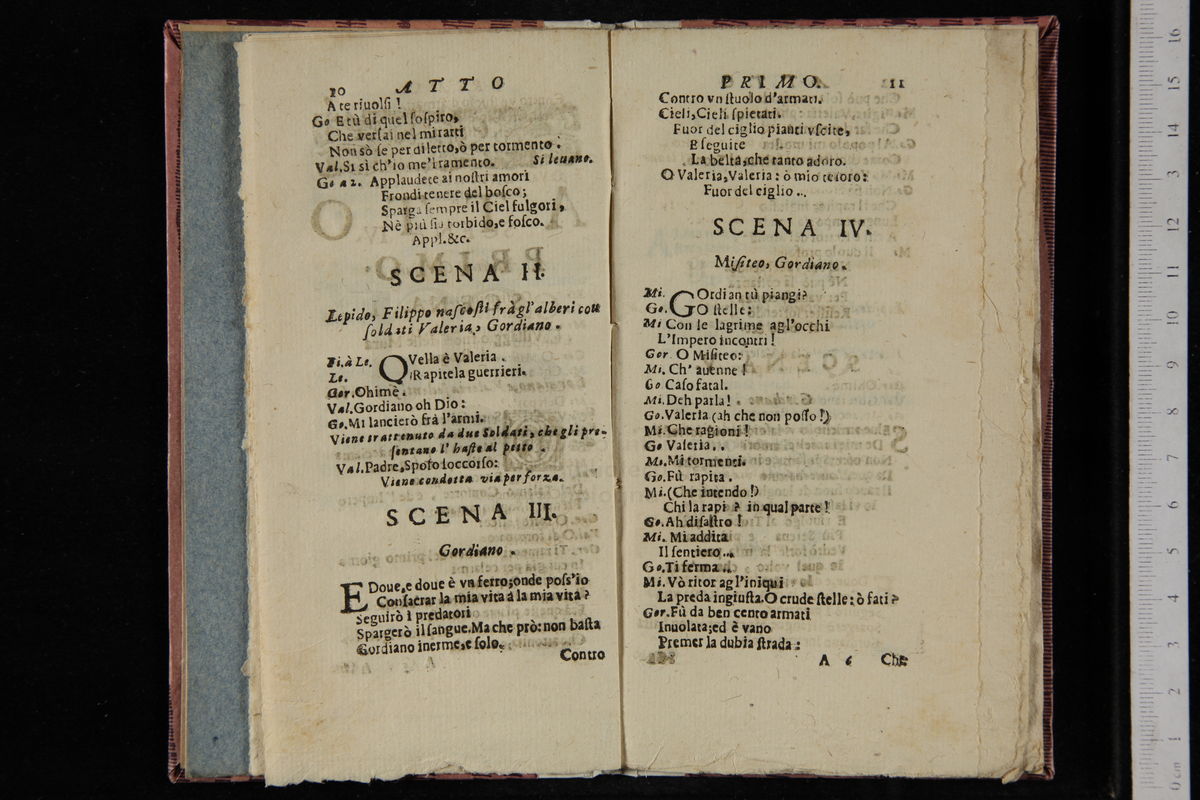 10 ATTO
A te riuolſi !
Go E tù di quel ſoſpiro,
Che verſai nel mirarti
Non sò ſe per diletto, ò per tormento .
Val. Si sì ch'io me'l ramento. Si leuano.
Go a 2. Applaudete ai noſtri amori
Frondi tenere del boſco ;
Sparga ſempre il Ciel fulgori,
Nè più ſia torbido, e foſco.
Appl. &c.
SCENA II.
Lepido, Filippo naſcoſti frà gl'alberi con
ſoldati Valeria, Gordiano .
Fi. à Le. QVella è Valeria .
Le. Rapitela guerrieri.
Gor. Ohimè .
Val. Gordiano oh Dio :
Go. Mi lancierò frà l'armi.
Viene trattenuto da due Soldati, che gli pre-
ſentano l' haſte al petto .
Val. Padre, Spoſo ſoccorſo :
Viene condotta via per forza.
SCENA III.
Gordiano .
E Doue, e doue è vn ferro; onde poſs'io
Conſacrar la mia vita à la mia vita ?
Seguirò i predatori
Spargerò il ſangue. Ma che prò: non baſta
Gordiano inerme, e ſolo.
Contro
PRIMO. 11
Contro vn ſtuolo d'armati.
Cieli, Cieli ſpietati.
Fuor del ciglio pianti vſcite,
E ſeguite
La beltà, che tanto adoro.
O Valeria, Valeria : ò mio teſoro :
Fuor del ciglio ..
SCENA IV.
Miſiteo, Gordiano .
Mi. GOrdian tù piangi ?
Go. O ſtelle :
Mi Con le lagrime agl'occhi
L'Impero incontri !
Gor O Miſiteo :
Mi. Ch' auenne !
Go Caſo fatal.
Mi. Deh parla ! .
Go. Valeria (ah che non poſſo !)
Mi. Che ragioni !
Go Valeria . .
Mi. Mi tormenti.
Go. Fù rapita .
Mi. (Che intendo !)
Chi la rapì ? in qual parte !
Go. Ah diſaſtro !
Mi. Mi addita
Il ſentiero ..
Go. Ti ferma ..
Mi. Vò ritor agl'iniqui
La preda ingiuſta. O crude ſtelle : ò fati ?
Gor. Fù da ben cento armati
Inuolata; ed è vano
Premer la dubia ſtrada :
A 6 Che